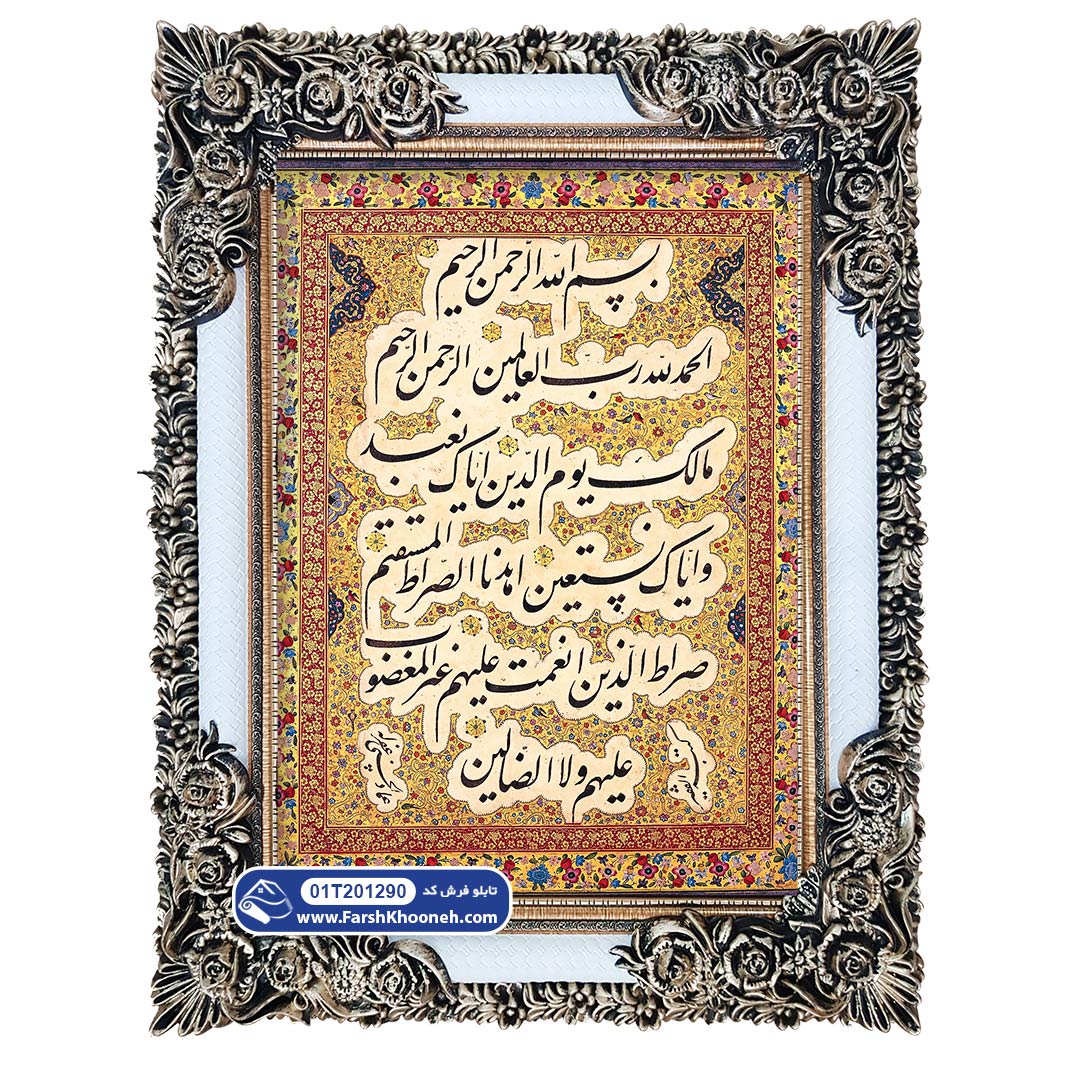 بسم الله الرحمن الرحیم
الحمدلله رب العالمین الرحمن الرحیم
مالک یوم الدین ایاک نعبد
وایاک نستعین اهدنا الصراط المستقیم
صراط الذین انعمت علیهم غیر المغضوب
علیهم ولا الضالین
تابلو فرش کد 01T201290
www.FarshKhooneh.com